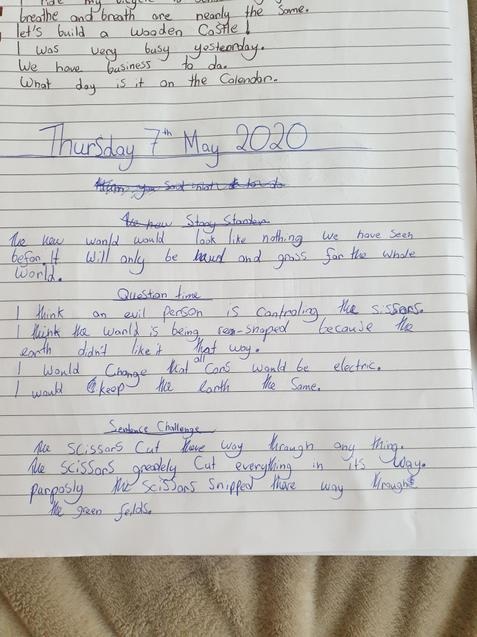 breathe and breath are nearly the same.
let's build a wooden Castle!
I was very busy yesterday.
We have business to do.
What day is it on the Calendar.
Thursday 7th May 2020
Story Starter
The new world would look like nothing we have seen
befor. It will only be and grass for the whole
world.
Question time
I think an evil person is controling the sissors.
I think the world is being rea-shaped because the
earth didn't like it that way.
I would Change that all Cars would be electric.
I would keep the Earth the same.
Sentence Challenge
The scissors Cut there way through any thing.
The scissors greately Cut everything in its way.
Purposly the scissors snipped there way through
the green feilds.